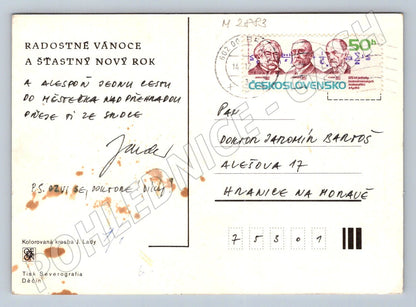 M 24783
RADOSTNÉ VÁNOCE
A ŠŤASTNÝ NOVÝ ROK
A ALESPOŇ JEDNU CESTU
DO MĚSTEČKA NAD PŘEHRADOU
PŘEJE TI ZE SRDCE
P.S. OZVI SE, DOKTORE!
Kolorovaná kresba J. Lady
Tisk Severografia
Děčín
50h
ČESKOSLOVENSKO
PAN
DOKTOR JAROMÍR BARTOŠ
ALEŠOVA 17
HRANICE NA MORAVĚ
75301
POHLEDNICE-CZECH